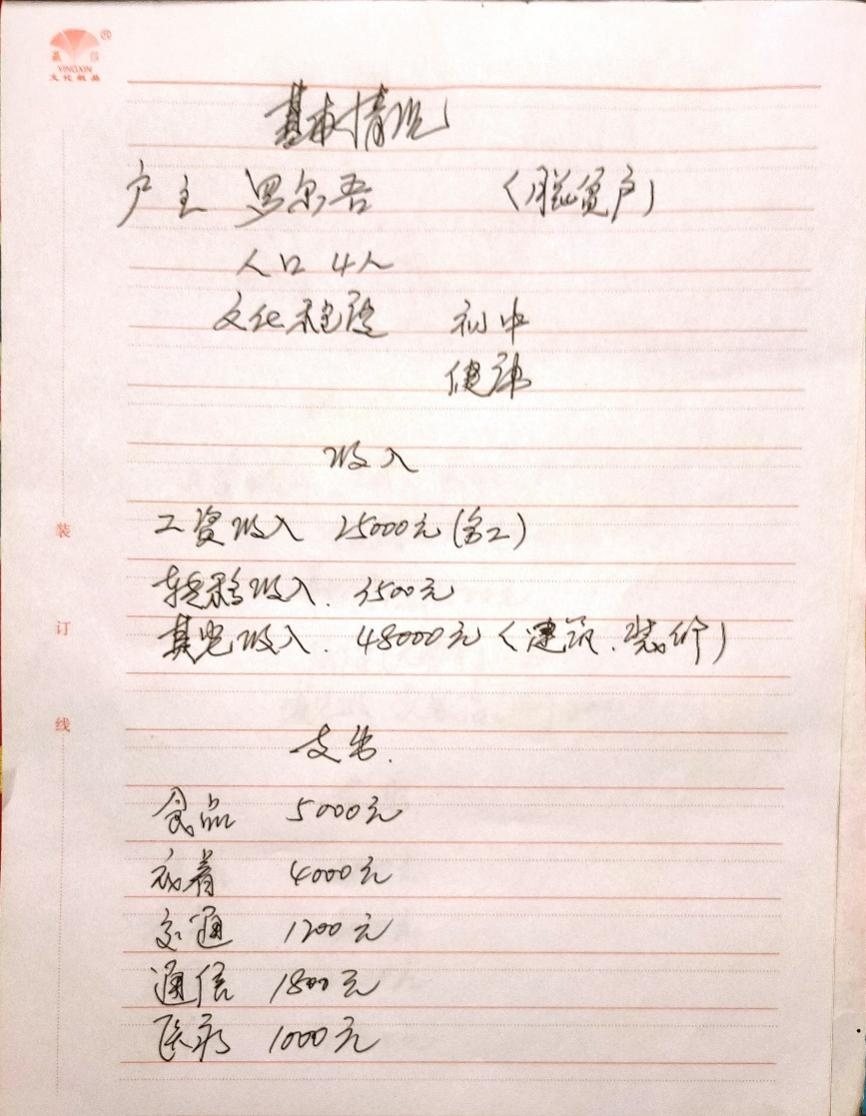 赢信
YINGXIN
文化纸品
基本情况
户主 罗尔吾 (脱贫户)
人口 4人
文化程度 初中
健康
收入
工资收入 25000元(务工)
转移收入. 3500元
其它收入. 48000元(建筑.装修)
支出.
食品 5000元
衣着 4000元
交通 1200元
通信 1800元
医疗 1000元
装
订
线